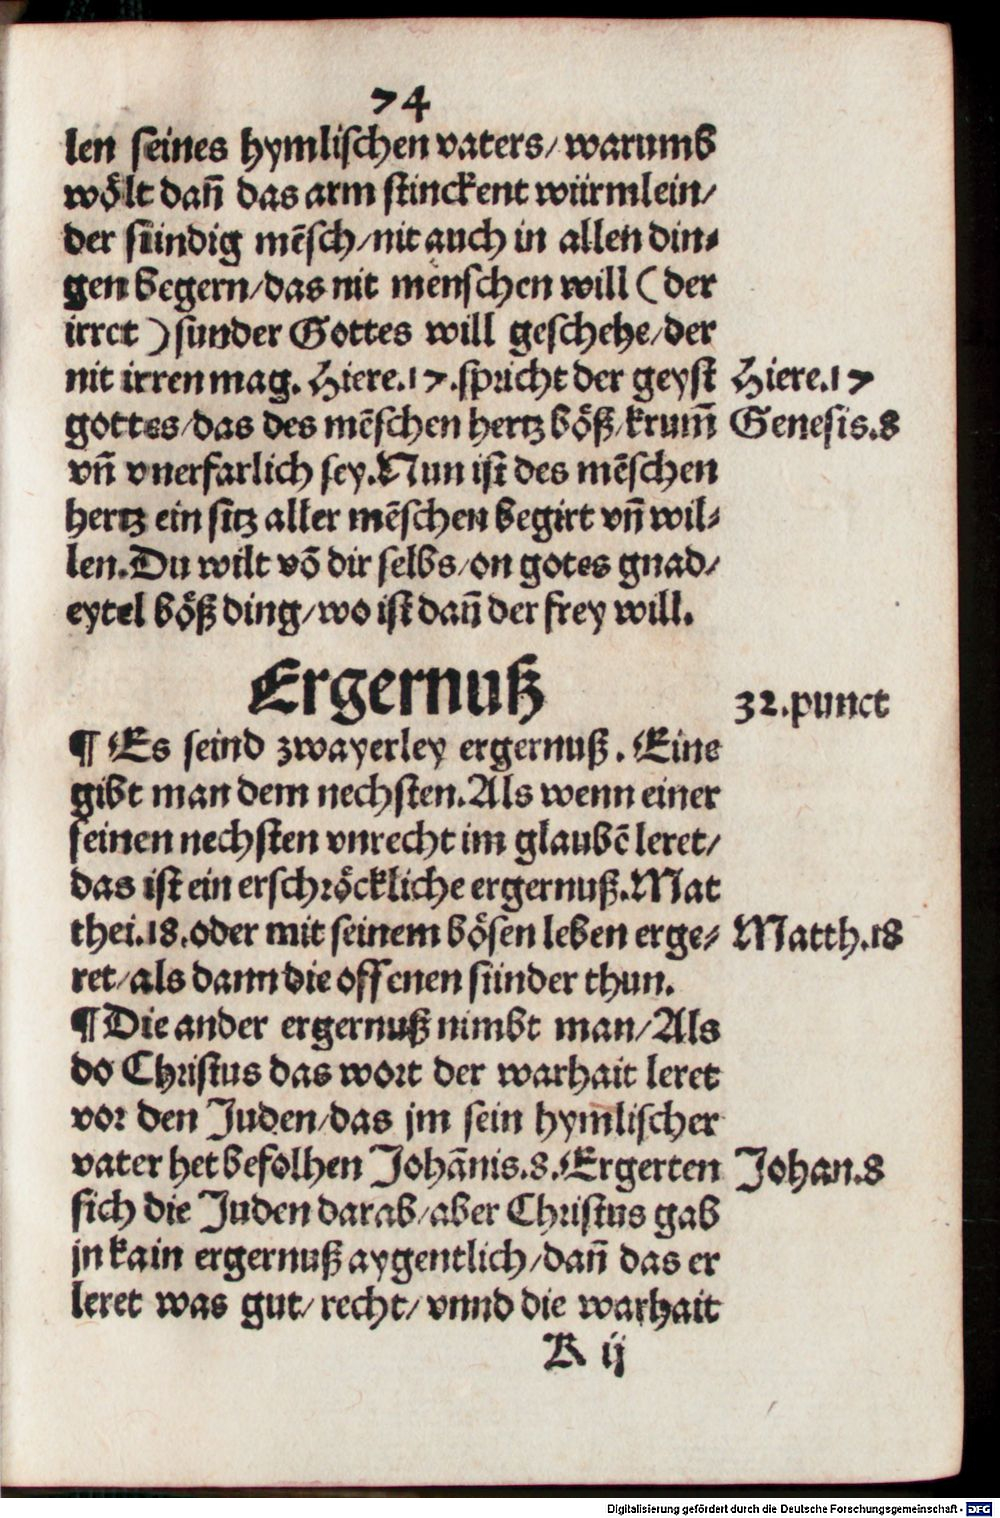 74
len seines hymlischen vaters/ warumb
wölt dañ das arm stinckent würmlein/
der sündig mẽsch/ nit auch in allen din⸗
gen begern/ das nit menschen will ( der
irret ) sunder Gottes will geschehe/ der
nit irren mag. Hiere.17. spricht der geyst
Hiere.17
gottes/ das des mẽschen hertz böß/ krum̃
Genesis.8
vñ vnerfarlich sey. Nun ist des mẽschen
hertz ein sitz aller mẽschen begirt vñ wil⸗
len. Du wilt võ dir selbs/ on gotes gnad/
eytel böß ding/ wo ist dañ der frey will.
Ergernuß
32. punct
¶ Es seind zwayerley ergernuß. Eine
gibt man dem nechsten. Als wenn einer
seinen nechsten vnrecht im glaubẽ leret/
das ist ein erschröckliche ergernuß. Mat
thei.18. oder mit seinem bösen leben erge⸗
Matth.18
ret/ als dann die offenen sünder thun.
¶ Die ander ergernuß nimbt man/ Als
do Christus das wort der warhait leret
vor den Juden/ das jm sein hymlischer
vater het befolhen Johãnis.8. Ergerten
Johan.8
sich die Juden darab/ aber Christus gab
jn kain ergernuß aygentlich/ dañ das er
leret was gut/ recht/ vnnd die warhait
K ij
Digitalisierung gefördert durch die Deutsche Forschungsgemeinschaft - DFG